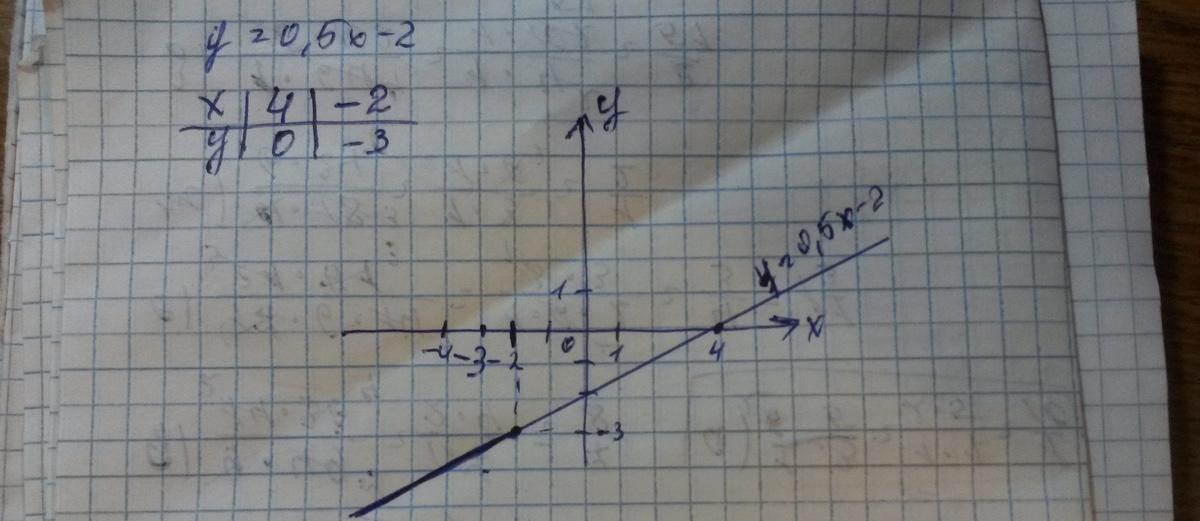 y = 0,5x - 2
x | 4 | -2
y | 0 | -3
y
y = 0,5x - 2
1
-4 -3 -2 0 1 4 x
-3